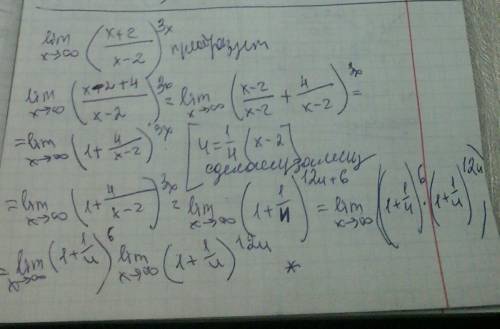 lim x→∞ (x+2/x-2)^3x преобразуем
lim x→∞ (x-2+4/x-2)^3x = lim x→∞ (x-2/x-2 + 4/x-2)^3x =
= lim x→∞ (1 + 4/x-2)^3x [u = 1/4 (x-2)]
сделаем замену
= lim x→∞ (1 + 4/x-2)^3x = lim x→∞ (1 + 1/u)^12u+6 = lim x→∞ ((1+1/u)^6 · (1+1/u)^12u)
= lim x→∞ (1+1/u)^6 lim x→∞ (1+1/u)^12u *